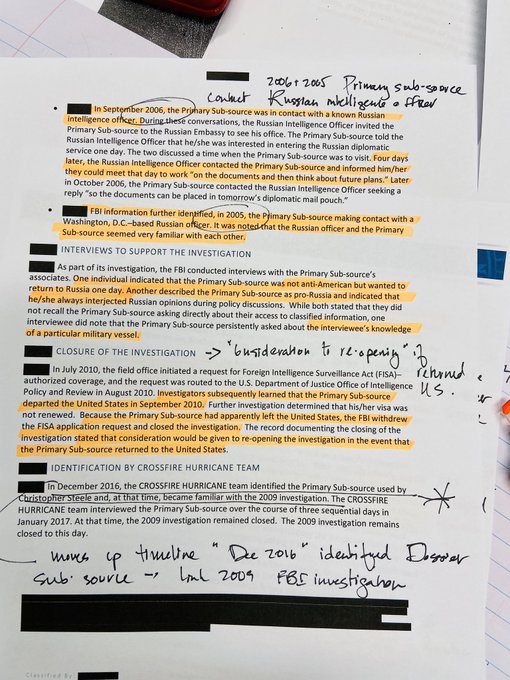 2006 + 2005 Primary sub-source
contact Russian intelligence officer
• In September 2006, the Primary Sub-source was in contact with a known Russian
intelligence officer. During these conversations, the Russian Intelligence Officer invited the
Primary Sub-source to the Russian Embassy to see his office. The Primary Sub-source told the
Russian Intelligence Officer that he/she was interested in entering the Russian diplomatic
service one day. The two discussed a time when the Primary Sub-source was to visit. Four days
later, the Russian Intelligence Officer contacted the Primary Sub-source and informed him/her
they could meet that day to work "on the documents and then think about future plans." Later
in October 2006, the Primary Sub-source contacted the Russian Intelligence Officer seeking a
reply "so the documents can be placed in tomorrow's diplomatic mail pouch."
• FBI information further identified, in 2005, the Primary Sub-source making contact with a
Washington, D.C.–based Russian officer. It was noted that the Russian officer and the Primary
Sub-source seemed very familiar with each other.
INTERVIEWS TO SUPPORT THE INVESTIGATION
As part of its investigation, the FBI conducted interviews with the Primary Sub-source's
associates. One individual indicated that the Primary Sub-source was not anti-American but wanted to
return to Russia one day. Another described the Primary Sub-source as pro-Russia and indicated that
he/she always interjected Russian opinions during policy discussions. While both stated that they did
not recall the Primary Sub-source asking directly about their access to classified information, one
interviewee did note that the Primary Sub-source persistently asked about the interviewee's knowledge
of a particular military vessel.
CLOSURE OF THE INVESTIGATION → "Consideration to re-opening" if
returned
U.S.
In July 2010, the field office initiated a request for Foreign Intelligence Surveillance Act (FISA)–
authorized coverage, and the request was routed to the U.S. Department of Justice Office of Intelligence
Policy and Review in August 2010. Investigators subsequently learned that the Primary Sub-source
departed the United States in September 2010. Further investigation determined that his/her visa was
not renewed. Because the Primary Sub-source had apparently left the United States, the FBI withdrew
the FISA application request and closed the investigation. The record documenting the closing of the
investigation stated that consideration would be given to re-opening the investigation in the event that
the Primary Sub-source returned to the United States.
IDENTIFICATION BY CROSSFIRE HURRICANE TEAM
In December 2016, the CROSSFIRE HURRICANE team identified the Primary Sub-source used by
Christopher Steele and, at that time, became familiar with the 2009 investigation. The CROSSFIRE
HURRICANE team interviewed the Primary Sub-source over the course of three sequential days in
January 2017. At that time, the 2009 investigation remained closed. The 2009 investigation remains
closed to this day.
moves up timeline "Dec 2016" identified Dossier
sub-source → link 2009 FBI investigation
Classified By: